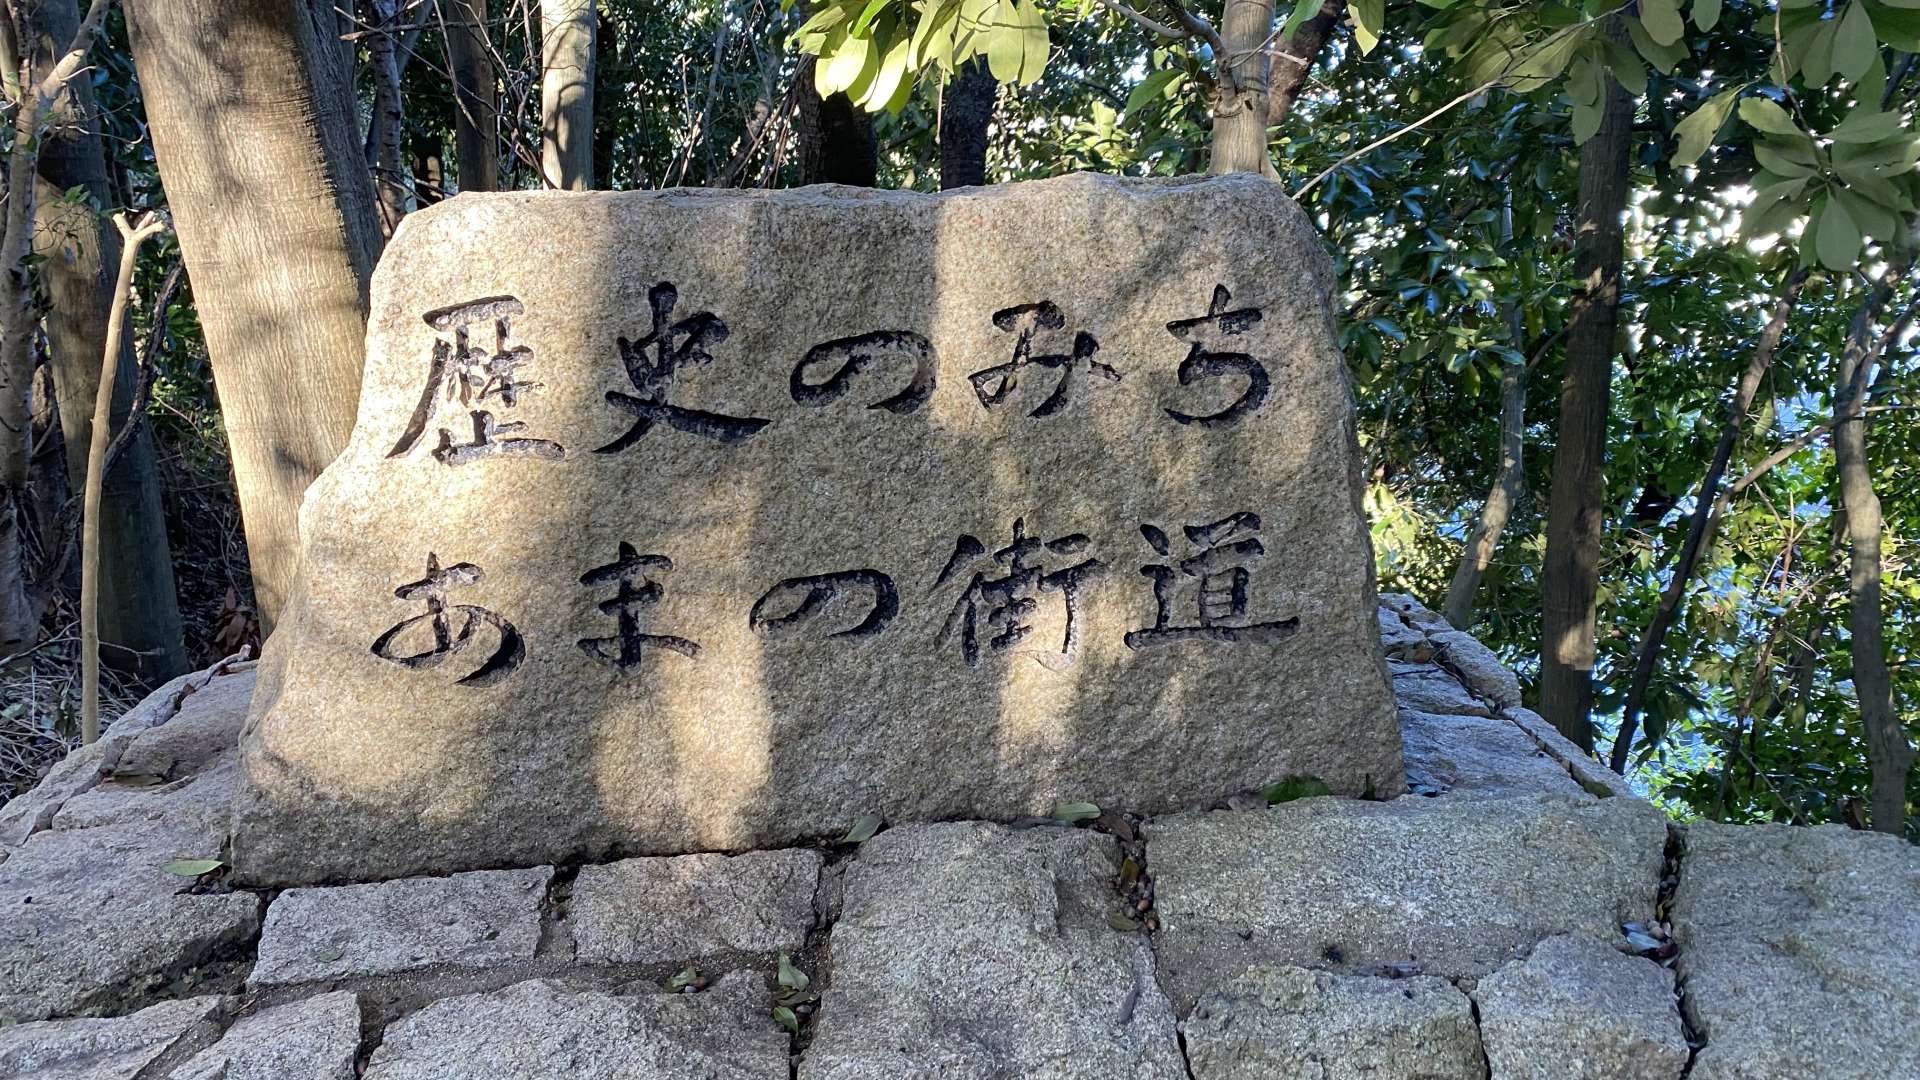 歴史のみち
あまの街道